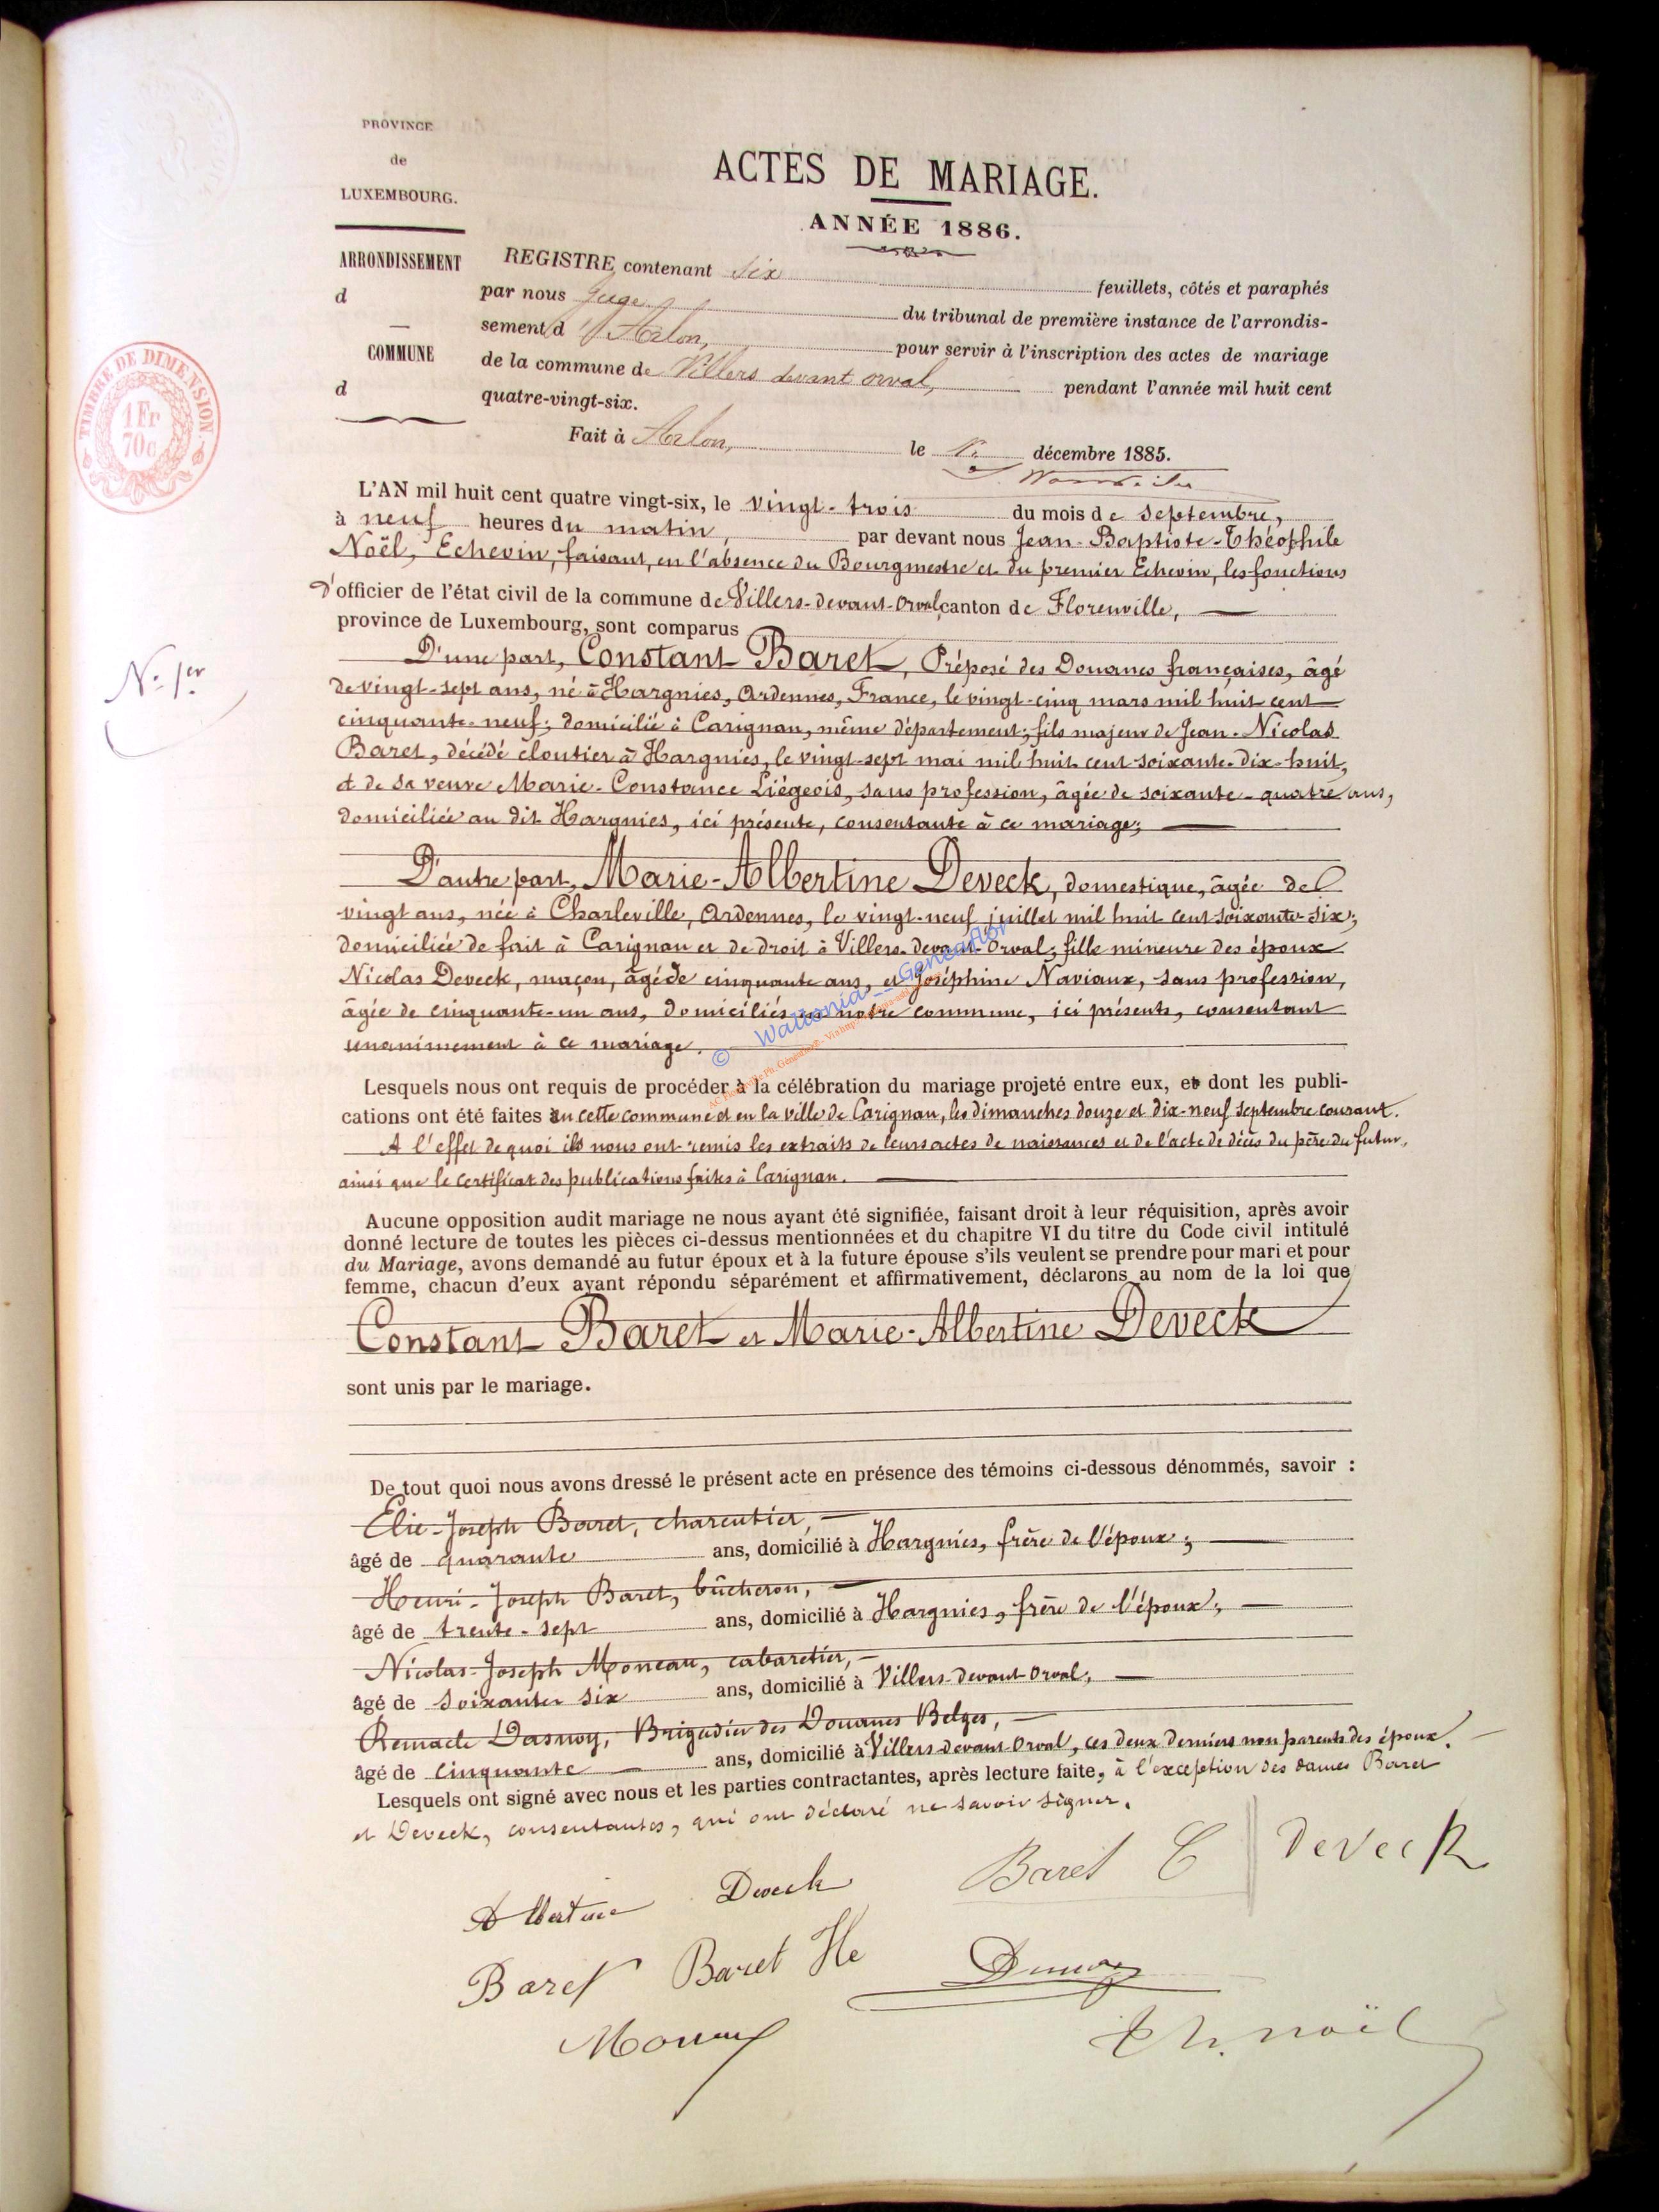 PROVINCE
de
LUXEMBOURG.
ACTES DE MARIAGE.
ANNÉE 1886.
ARRONDISSEMENT
d
COMMUNE
d
REGISTRE contenant six feuillets, côtés et paraphés
par nous Juge du tribunal de première instance de l'arrondis-
sement d'Arlon, pour servir à l'inscription des actes de mariage
de la commune de Villers devant orval, pendant l'année mil huit cent
quatre-vingt-six.
Fait à Arlon, le décembre 1885.
TIMBRE DE DIMENSION
1 Fr
70c
L'AN mil huit cent quatre vingt-six, le vingt-trois du mois de septembre,
à neuf heures du matin, par devant nous Jean-Baptiste-Théophile
Noël, Echevin, faisant, en l'absence du Bourgmestre et du premier Echevin, les fonctions
d'officier de l'état civil de la commune de Villers-devant-Orval, canton de Florenville,
province de Luxembourg, sont comparus
N° 1er
D'une part, Constant Baret, Préposé des Douanes françaises, âgé
de vingt-sept ans, né à Hargnies, Ardennes, France, le vingt-cinq mars mil huit cent
cinquante-neuf; domicilié à Carignan, même département; fils majeur de Jean-Nicolas
Baret, décédé cloutier à Hargnies, le vingt-sept mai mil huit cent soixante-dix-huit,
et de sa veuve Marie-Constance Liégeois, sans profession, âgée de soixante-quatre ans,
domiciliée au dit Hargnies, ici présente, consentante à ce mariage;
D'autre part, Marie-Albertine Deveck, domestique, âgée de
vingt ans, née à Charleville, Ardennes, le vingt-neuf juillet mil huit cent soixante-six;
domiciliée de fait à Carignan et de droit à Villers-devant-Orval; fille mineure des époux
Nicolas Deveck, maçon, âgé de cinquante ans, et Joséphine Naviaux, sans profession,
âgée de cinquante-un ans, domiciliés en notre commune, ici présents, consentant
unanimement à ce mariage.
© Wallonia - Geneaflor
Lesquels nous ont requis de procéder à la célébration du mariage projeté entre eux, et dont les publi-
cations ont été faites en cette commune et en la ville de Carignan, les dimanches douze et dix-neuf septembre courant.
A l'effet de quoi ils nous ont remis les extraits de leurs actes de naissances et de l'acte de décès du père du futur,
ainsi que le certificat des publications faites à Carignan.
Aucune opposition audit mariage ne nous ayant été signifiée, faisant droit à leur réquisition, après avoir
donné lecture de toutes les pièces ci-dessus mentionnées et du chapitre VI du titre du Code civil intitulé
du Mariage, avons demandé au futur époux et à la future épouse s'ils veulent se prendre pour mari et pour
femme, chacun d'eux ayant répondu séparément et affirmativement, déclarons au nom de la loi que
Constant Baret et Marie-Albertine Deveck
sont unis par le mariage.
De tout quoi nous avons dressé le présent acte en présence des témoins ci-dessous dénommés, savoir :
Elie-Joseph Baret, charpentier,
âgé de quarante ans, domicilié à Hargnies, frère de l'époux;
Henri-Joseph Baret, bûcheron,
âgé de trente-sept ans, domicilié à Hargnies, frère de l'époux;
Nicolas-Joseph Moneau, cabaretier,
âgé de soixante six ans, domicilié à Villers-devant-Orval;
Remacle Dasnoy, Brigadier des Douanes Belges,
âgé de cinquante ans, domicilié à Villers-devant-Orval, ces deux derniers non parents des époux.
Lesquels ont signé avec nous et les parties contractantes, après lecture faite, à l'exception des dames Baret
et Deveck, consentantes, qui ont déclaré ne savoir signer.
Albertine Deveck Baret C Deveck
Baret Baret He
Th. Noël